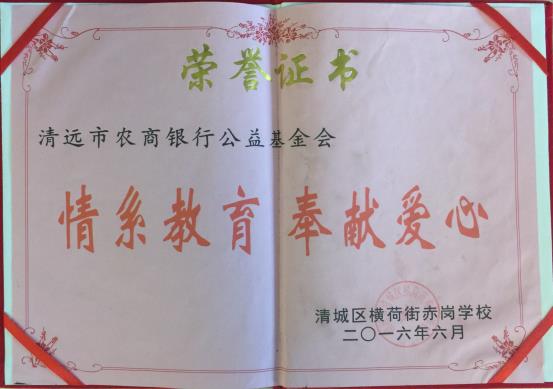 荣誉证书
清远市农商银行公益基金会
情系教育 奉献爱心
清城区横荷街赤岗学校
二〇一六年六月